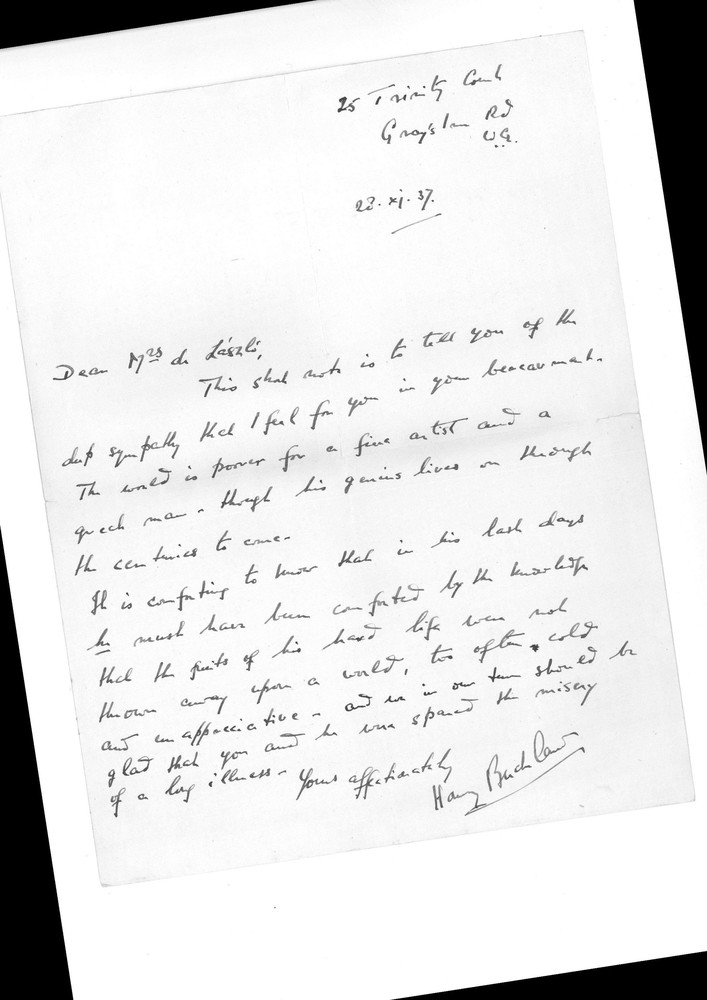 25 Trinity Court
Gray's Inn Rd
W.C.
28. xj. 37.
Dear Mrs de László,
This short note is to tell you of the
deep sympathy that I feel for you in your bereavement.
The world is poorer for a fine artist and a
great man - though his genius lives on through
the centuries to come.
It is comforting to know that in his last days
he must have been comforted by the knowledge
that the fruits of his hard life were not
thrown away upon a world, too often cold
and unappreciative - and we in our turn should be
glad that you and he were spared the misery
of a long illness - Yours affectionately
Harry Buckland